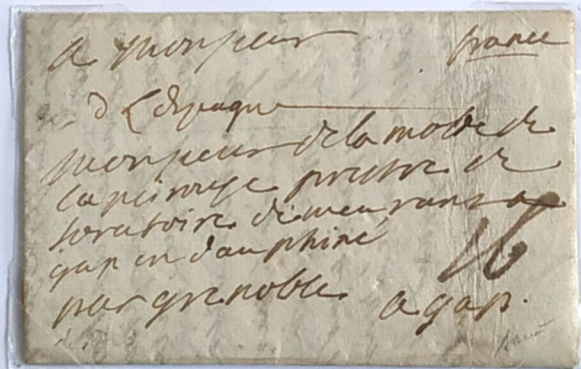 a Monsieur france
d Lespagne
Monsieur de la motte de
la peirouse prestre de
loratoire demeurant a
gap en dauphiné
par grenoble a gap.
16